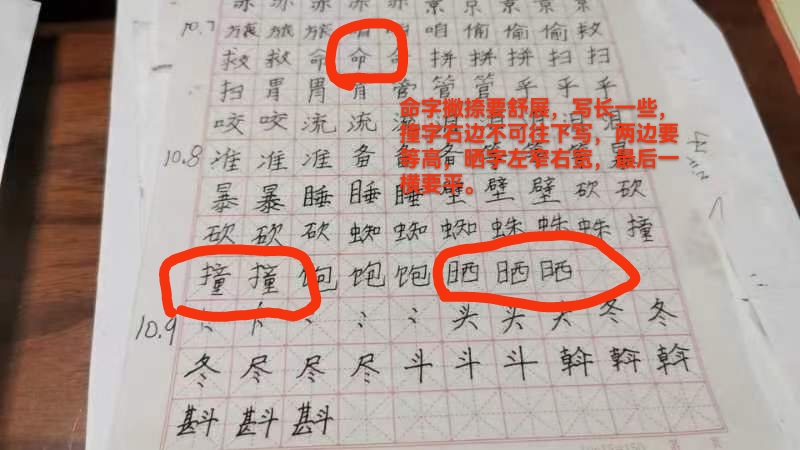 京 京 京 京 京
10.7 旅 旅 旅 咱 咱 咱 偷 偷 偷 救
救 救 命 命 命 拼 拼 拼 扫 扫
扫 胃 胃 胃 管 管 管 乎 乎 乎
咬 咬 流 流 混
命字撇捺要舒展，写长一些，
撞字右边不可往下写，两边要
等高，晒字左窄右宽，最后一
横要平。
10.8 准 准 准 备 备 备 等 等 等 暴
暴 暴 睡 睡 睡 壁 壁 壁 砍 砍
砍 砍 砍 蜘 蜘 蜘 蛛 蛛 蛛 撞
撞 撞 饱 饱 饱 晒 晒 晒
10.9 头 头 头 冬 冬
冬 尽 尽 尽 斗 斗 斗 斡 斡 斡
斟 斟 斟